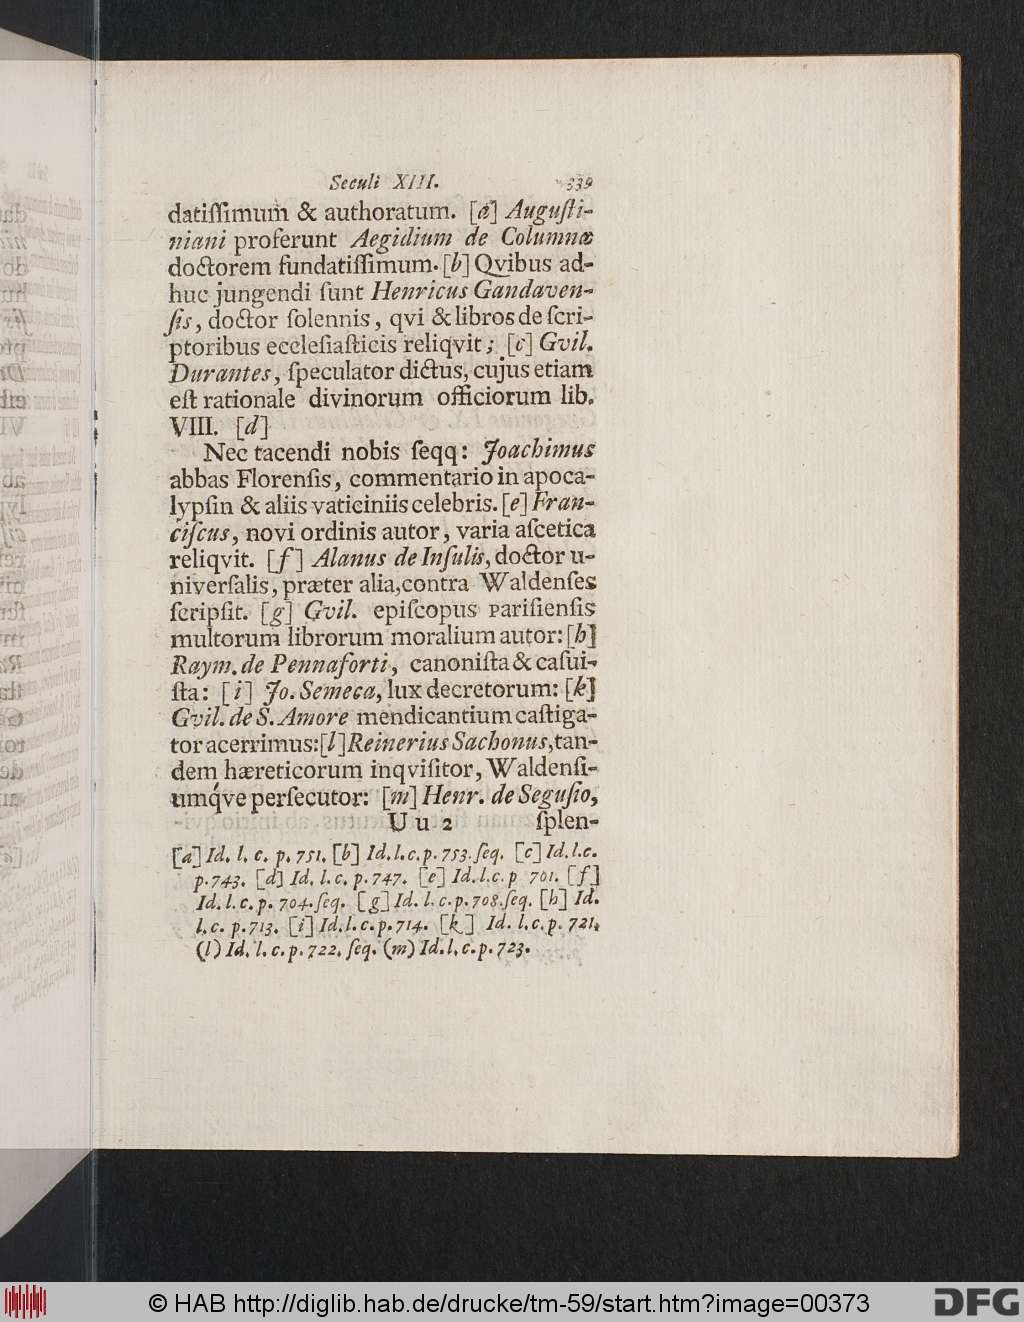 Seculi XIII. 339
datiſſimum & authoratum. [a] Auguſti-
niani proferunt Aegidium de Columna
doctorem fundatiſſimum. [b] Qvibus ad-
huc jungendi ſunt Henricus Gandaven-
ſis, doctor ſolennis, qvi & libros de ſcri-
ptoribus eccleſiaſticis reliqvit; [c] Gvil.
Durantes, ſpeculator dictus, cujus etiam
eſt rationale divinorum officiorum lib.
VIII. [d]
Nec tacendi nobis ſeqq: Joachimus
abbas Florenſis, commentario in apoca-
lypſin & aliis vaticiniis celebris. [e] Fran-
ciſcus, novi ordinis autor, varia aſcetica
reliqvit. [f] Alanus de Inſulis, doctor u-
niverſalis, præter alia, contra Waldenſes
ſcripſit. [g] Gvil. epiſcopus pariſienſis
multorum librorum moralium autor: [h]
Raym. de Pennaforti, canoniſta & caſui-
ſta: [i] Jo. Semeca, lux decretorum: [k]
Gvil. de S. Amore mendicantium caſtiga-
tor acerrimus: [l] Reinerius Sachonus, tan-
dem hæreticorum inqviſitor, Waldenſi-
umqve perſecutor: [m] Henr. de Seguſio,
U u 2 ſplen-
[a] Id. l. c. p. 751. [b] Id. l. c. p. 753. ſeq. [c] Id. l. c.
p. 743. [d] Id. l. c. p. 747. [e] Id. l. c. p 701. [f]
Id. l. c. p. 704. ſeq. [g] Id. l. c. p. 708. ſeq. [h] Id.
l. c. p. 713. [i] Id. l. c. p. 714. [k] Id. l. c. p. 721.
(l) Id. l. c. p. 722. ſeq. (m) Id. l. c. p. 723.
© HAB http://diglib.hab.de/drucke/tm-59/start.htm?image=00373 DFG